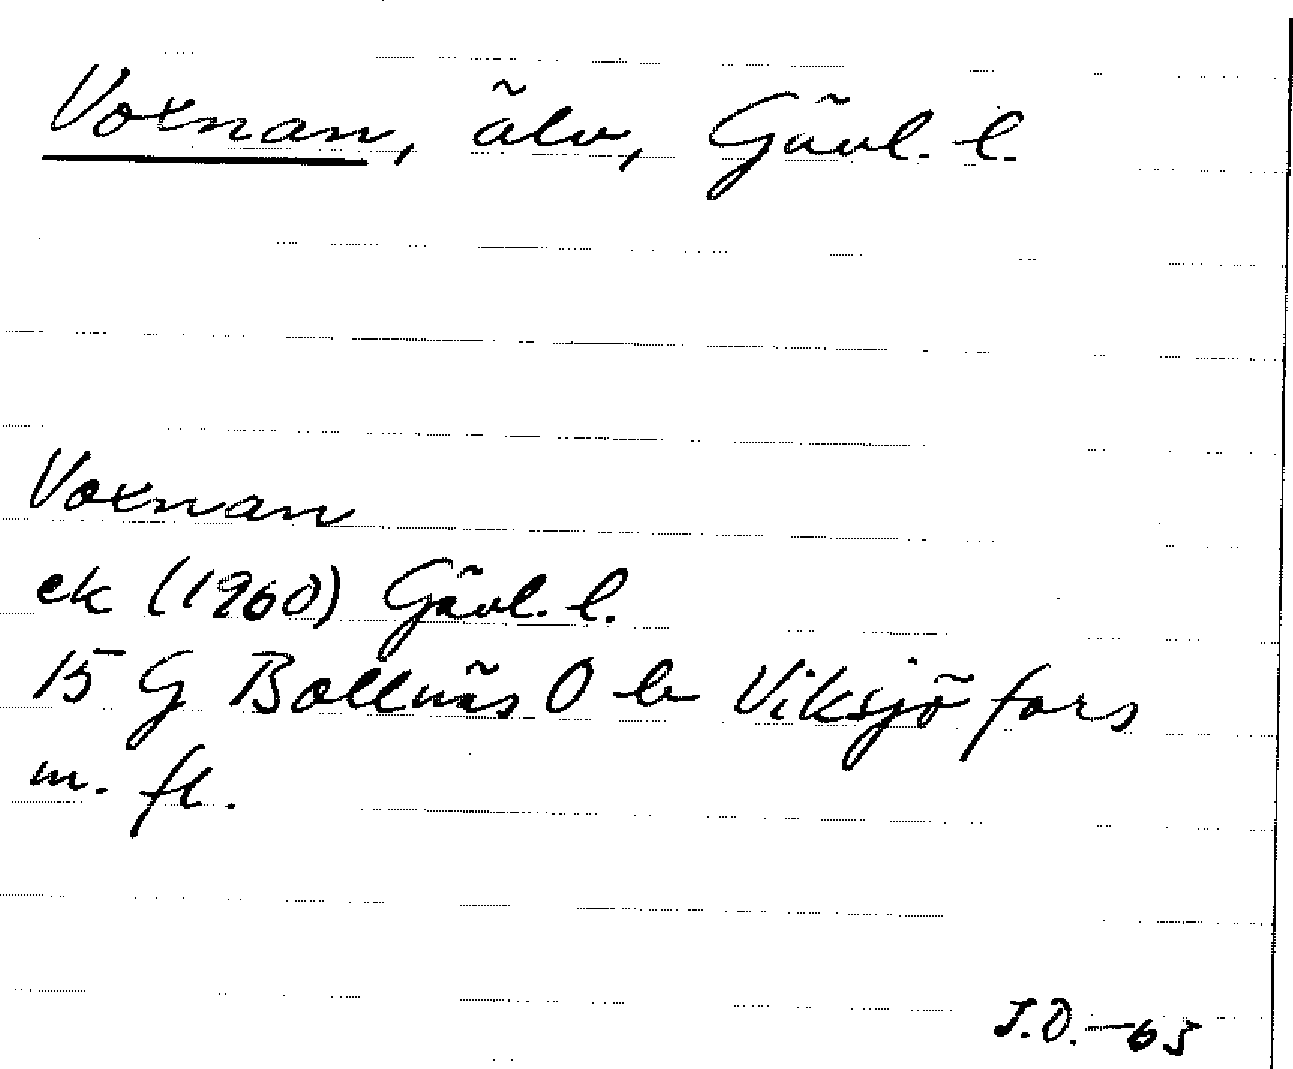 Voxnan, älv, Gävl. l.
Voxnan
ek (1960) Gävl. l.
15 G Bollnäs O b Viksjöfors
m. fl.
J.O.—65